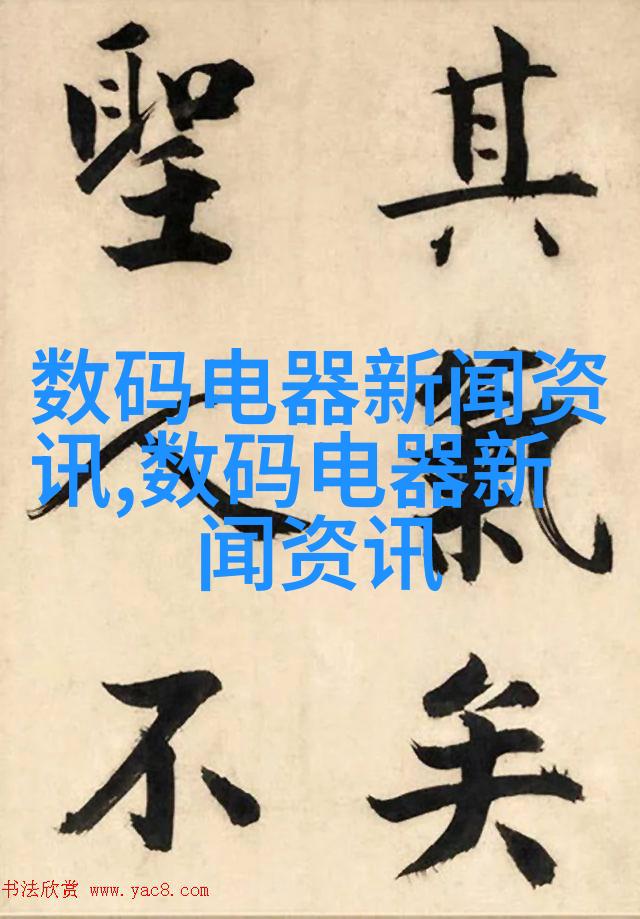 其氣矣
聖人不
数码电器新闻资
讯,数码电器新
闻资讯
书法欣赏 www.yac8.com